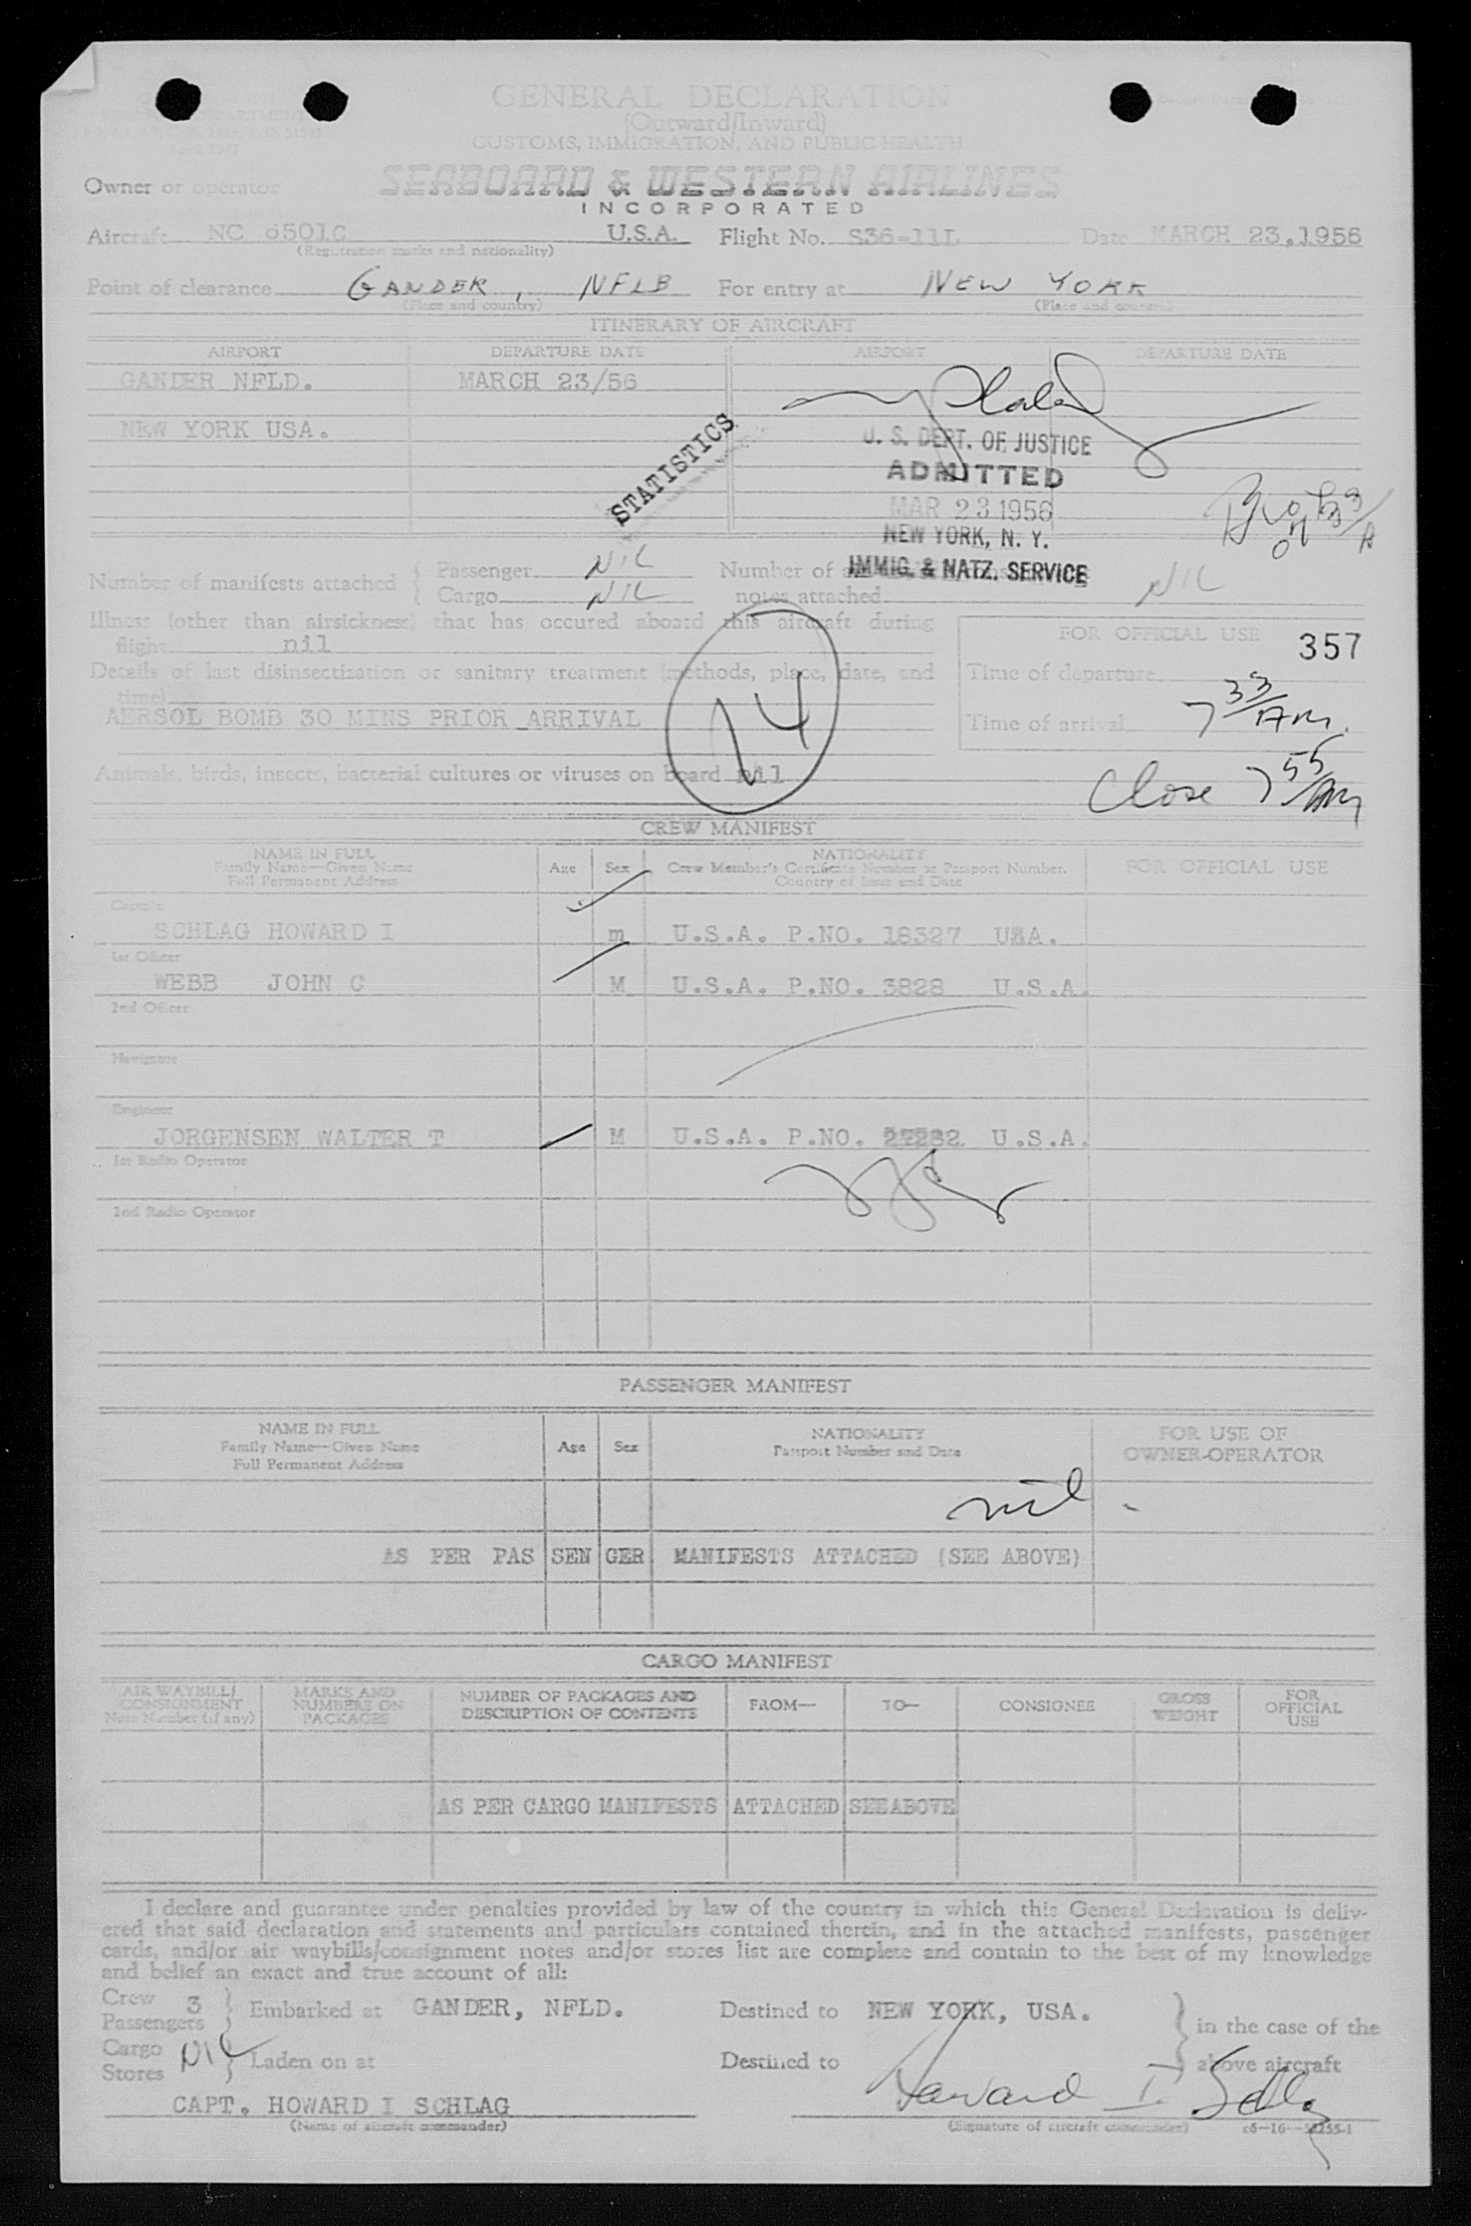 GENERAL DECLARATION
(Outward/Inward)
CUSTOMS, IMMIGRATION, AND PUBLIC HEALTH
Owner or operator SEABOARD & WESTERN AIRLINES
INCORPORATED
Aircraft NC 6501C U.S.A. Flight No. S36-11L Date MARCH 23, 1956
(Registration marks and nationality)
Point of clearance GANDER, NFLB For entry at NEW YORK
(Place and country) (Place and country)
ITINERARY OF AIRCRAFT
AIRPORT DEPARTURE DATE AIRPORT DEPARTURE DATE
GANDER NFLD. MARCH 23/56
NEW YORK USA.
STATISTICS
U. S. DEPT. OF JUSTICE
ADMITTED
MAR 23 1956
NEW YORK, N. Y.
IMMIG. & NATZ. SERVICE
Number of manifests attached { Passenger NIL Number of
Cargo NIL notes attached NIL
Illness (other than airsickness) that has occured aboard this aircraft during
flight nil
FOR OFFICIAL USE 357
Details of last disinsectization or sanitary treatment (methods, place, date, and
time)
Time of departure
AERSOL BOMB 30 MINS PRIOR ARRIVAL
Time of arrival 7 33/AM.
14
Animals, birds, insects, bacterial cultures or viruses on board nil
Close 7 55/AM
CREW MANIFEST
NAME IN FULL
Family Name—Given Name
Full Permanent Address
Age Sex
NATIONALITY
Crew Member's Certificate Number or Passport Number.
Country of Issue and Date
FOR OFFICIAL USE
Captain
SCHLAG HOWARD I m U.S.A. P.NO. 18327 USA.
1st Officer
WEBB JOHN C M U.S.A. P.NO. 3828 U.S.A.
2nd Officer
Navigator
Engineer
JORGENSEN WALTER T M U.S.A. P.NO. 22232 U.S.A.
1st Radio Operator
2nd Radio Operator
PASSENGER MANIFEST
NAME IN FULL
Family Name—Given Name
Full Permanent Address
Age Sex
NATIONALITY
Passport Number and Date
FOR USE OF
OWNER-OPERATOR
nil -
AS PER PAS SEN GER MANIFESTS ATTACHED (SEE ABOVE)
CARGO MANIFEST
AIR WAYBILL/
CONSIGNMENT
Note Number (if any)
MARKS AND
NUMBERS ON
PACKAGES
NUMBER OF PACKAGES AND
DESCRIPTION OF CONTENTS
FROM— TO— CONSIGNEE
GROSS
WEIGHT
FOR
OFFICIAL
USE
AS PER CARGO MANIFESTS ATTACHED SEEABOVE
I declare and guarantee under penalties provided by law of the country in which this General Declaration is deliv-
ered that said declaration and statements and particulars contained therein, and in the attached manifests, passenger
cards, and/or air waybills/consignment notes and/or stores list are complete and contain to the best of my knowledge
and belief an exact and true account of all:
Crew 3
Passengers } Embarked at GANDER, NFLD. Destined to NEW YORK, USA. } in the case of the
Cargo
Stores NIL } Laden on at Destined to above aircraft
CAPT. HOWARD I SCHLAG Howard I. Schlag
(Name of aircraft commander) (Signature of aircraft commander)